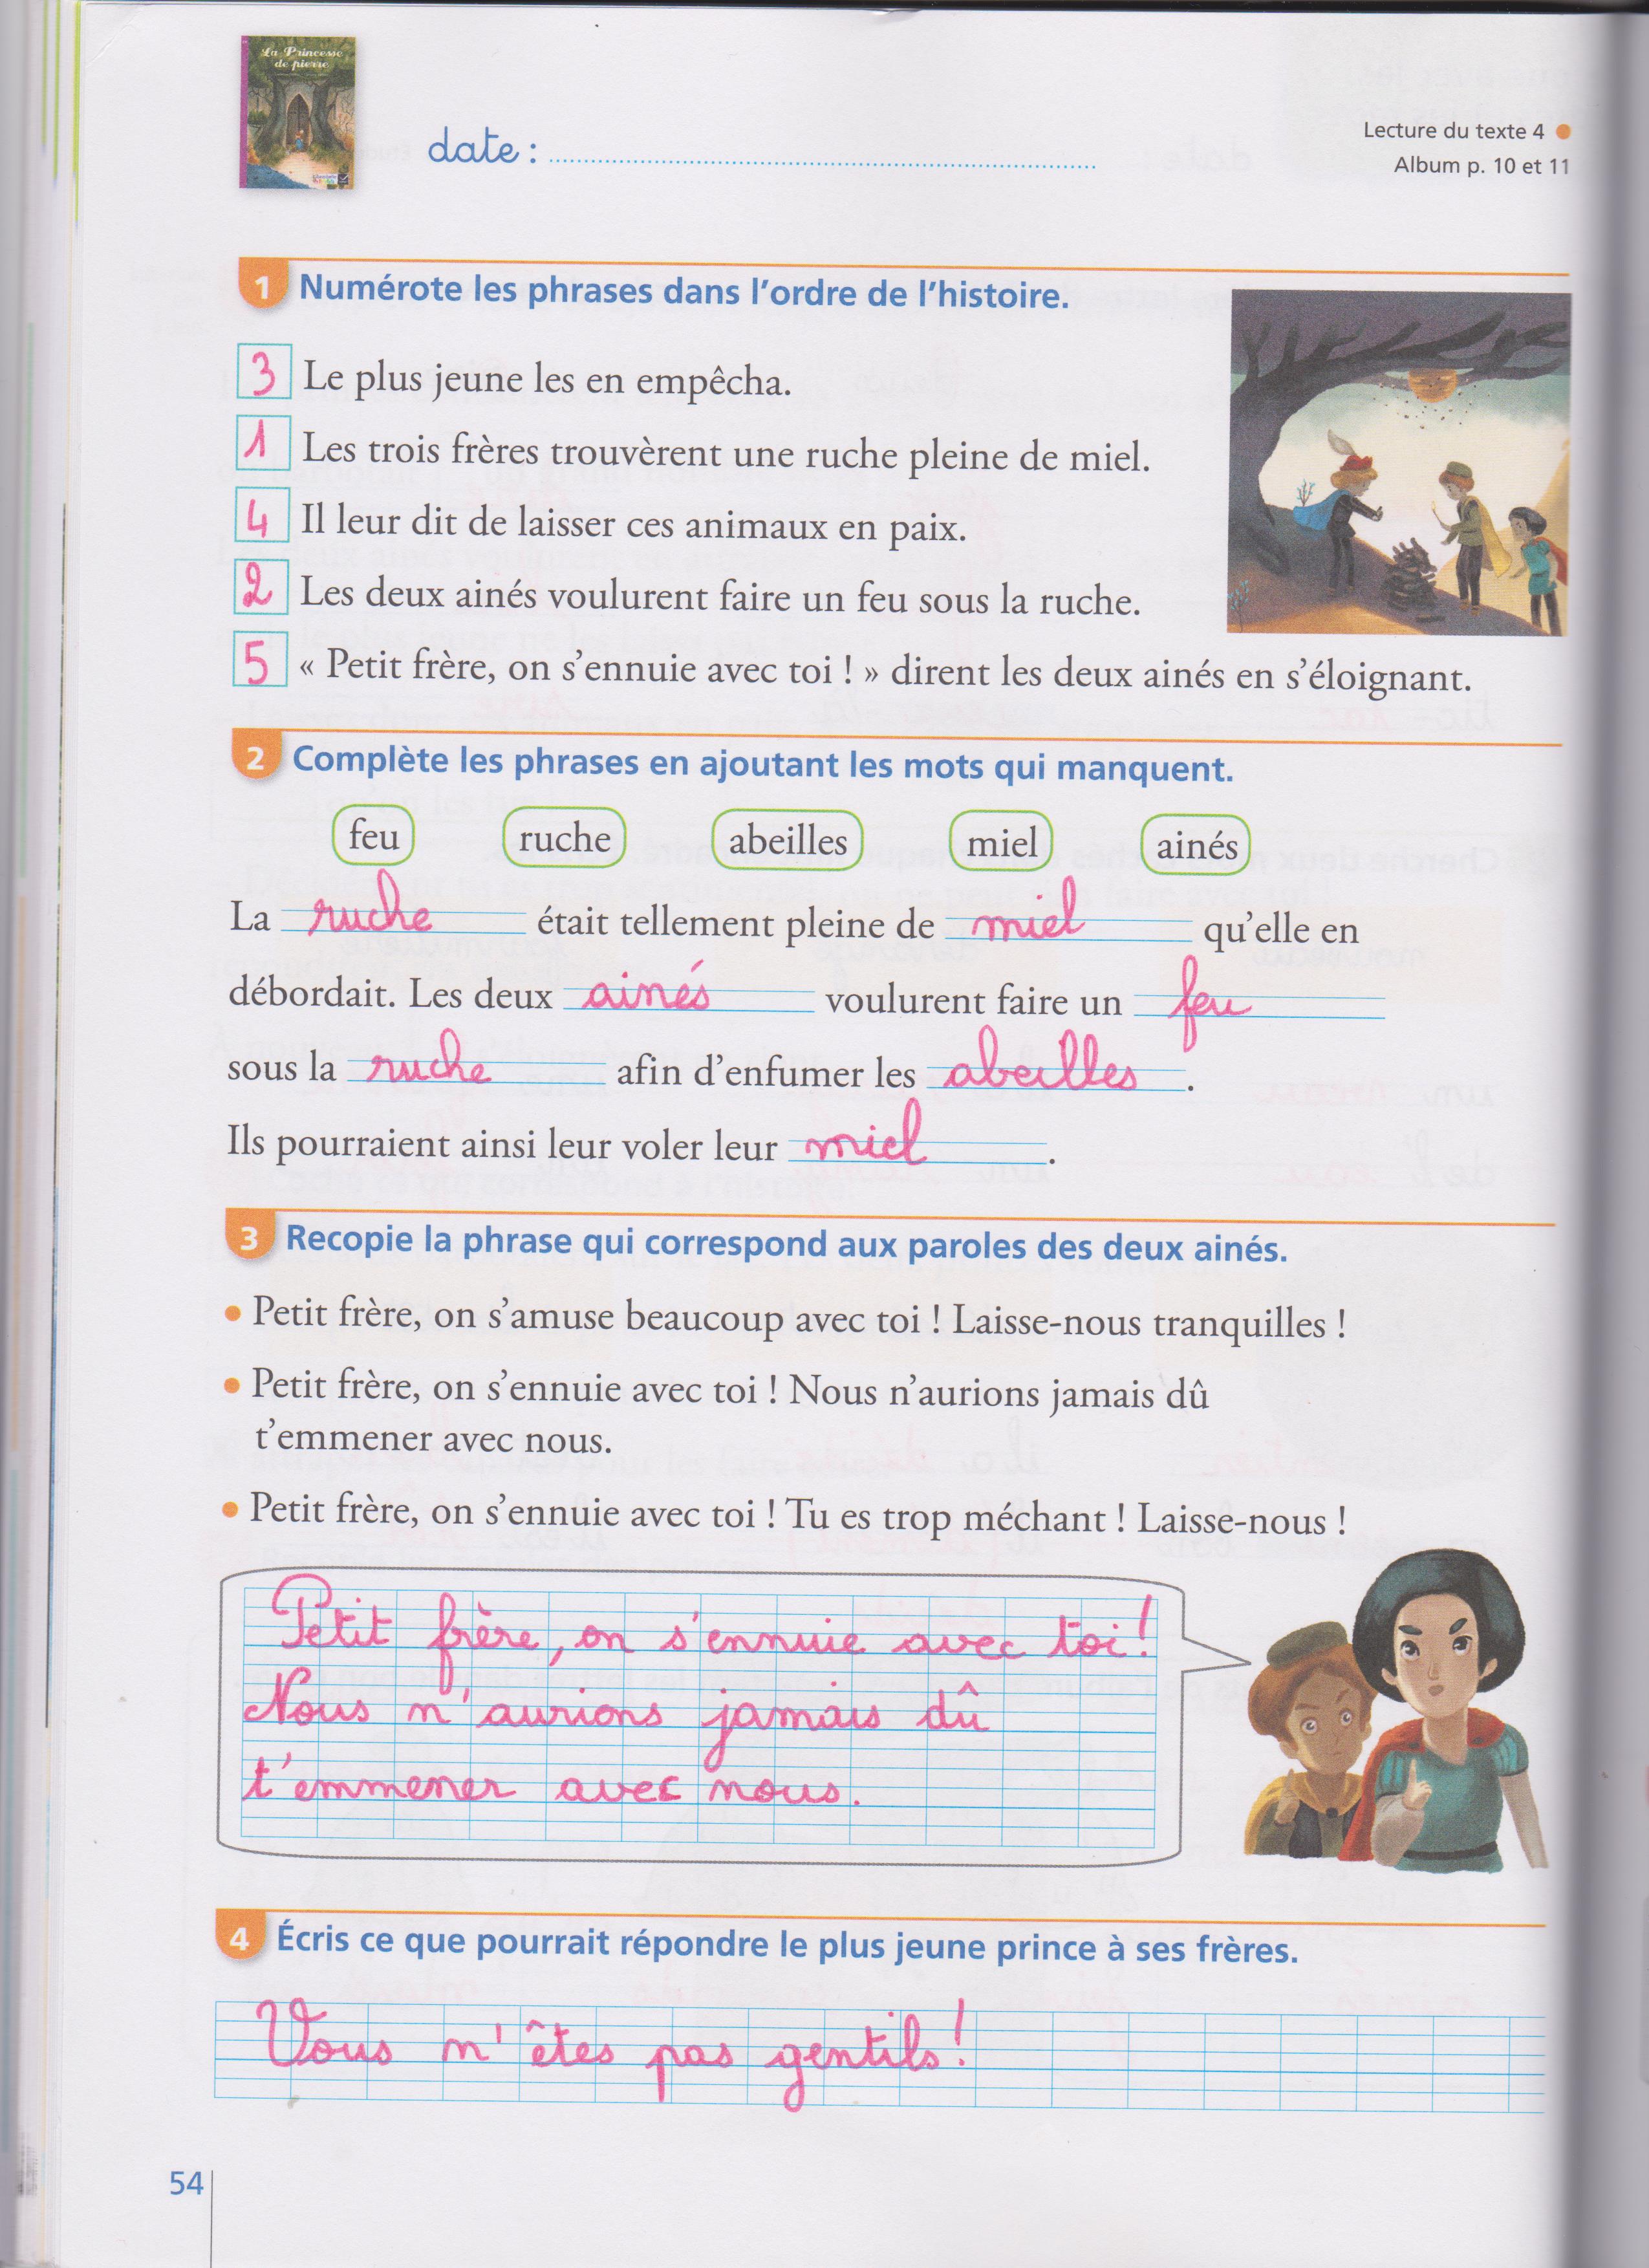 La Princesse
de pierre
date :
Lecture du texte 4
Album p. 10 et 11
1 Numérote les phrases dans l'ordre de l'histoire.
3 Le plus jeune les en empêcha.
1 Les trois frères trouvèrent une ruche pleine de miel.
4 Il leur dit de laisser ces animaux en paix.
2 Les deux ainés voulurent faire un feu sous la ruche.
5 « Petit frère, on s'ennuie avec toi ! » dirent les deux ainés en s'éloignant.
2 Complète les phrases en ajoutant les mots qui manquent.
feu ruche abeilles miel ainés
La ruche était tellement pleine de miel qu'elle en
débordait. Les deux ainés voulurent faire un feu
sous la ruche afin d'enfumer les abeilles.
Ils pourraient ainsi leur voler leur miel.
3 Recopie la phrase qui correspond aux paroles des deux ainés.
• Petit frère, on s'amuse beaucoup avec toi ! Laisse-nous tranquilles !
• Petit frère, on s'ennuie avec toi ! Nous n'aurions jamais dû
t'emmener avec nous.
• Petit frère, on s'ennuie avec toi ! Tu es trop méchant ! Laisse-nous !
Petit frère, on s'ennuie avec toi !
Nous n'aurions jamais dû
t'emmener avec nous.
4 Écris ce que pourrait répondre le plus jeune prince à ses frères.
Vous n'êtes pas gentils !
54